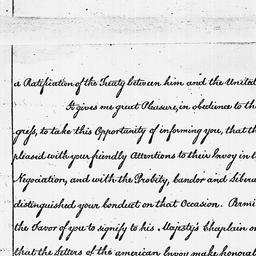 a Ratification of the Treaty between him and the United
It gives me great Pleasure, in obedience to th
gress, to take this Opportunity of informing you, that th
pleased with your friendly Attentions to their Envoy in t
Negociation, and with the Probity, Candor and Libera
distinguished your Conduct on that Occasion. Permi
the Favor of you to signify to his Majesty's Chaplain o
that the Letters of the american Envoy make honorab